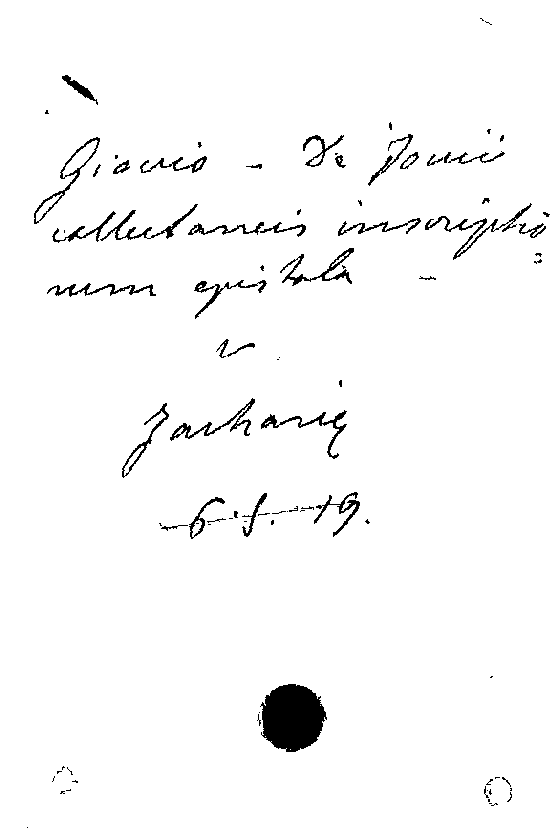 Giovio - De Jovii
collectaneis inscriptio=
num epistola -
v
Zacharię
6.f.19.